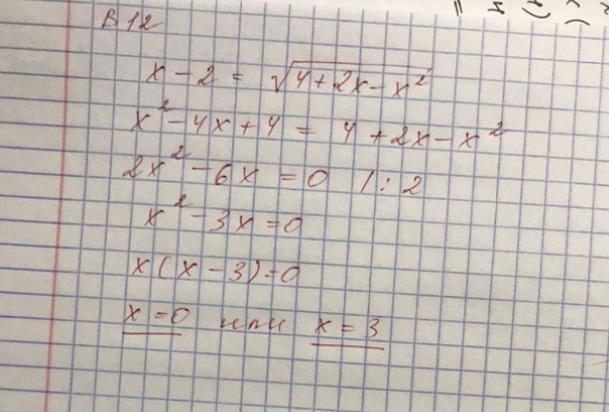 В 12
x - 2 = √(4 + 2x - x²)
x² - 4x + 4 = 4 + 2x - x²
2x² - 6x = 0 | : 2
x² - 3x = 0
x(x - 3) = 0
x = 0 или x = 3